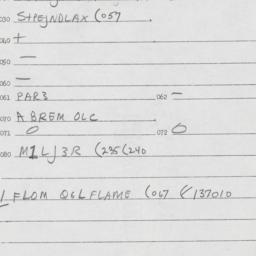 030 STPEJNDLAX (057
040 +
050 —
060 —
061 PAR3 062 —
070 A BREM OLC
071 O 072 O
080 M1LJ3R (235(240
1 FLOM Q6LFLAME (067 (/137010